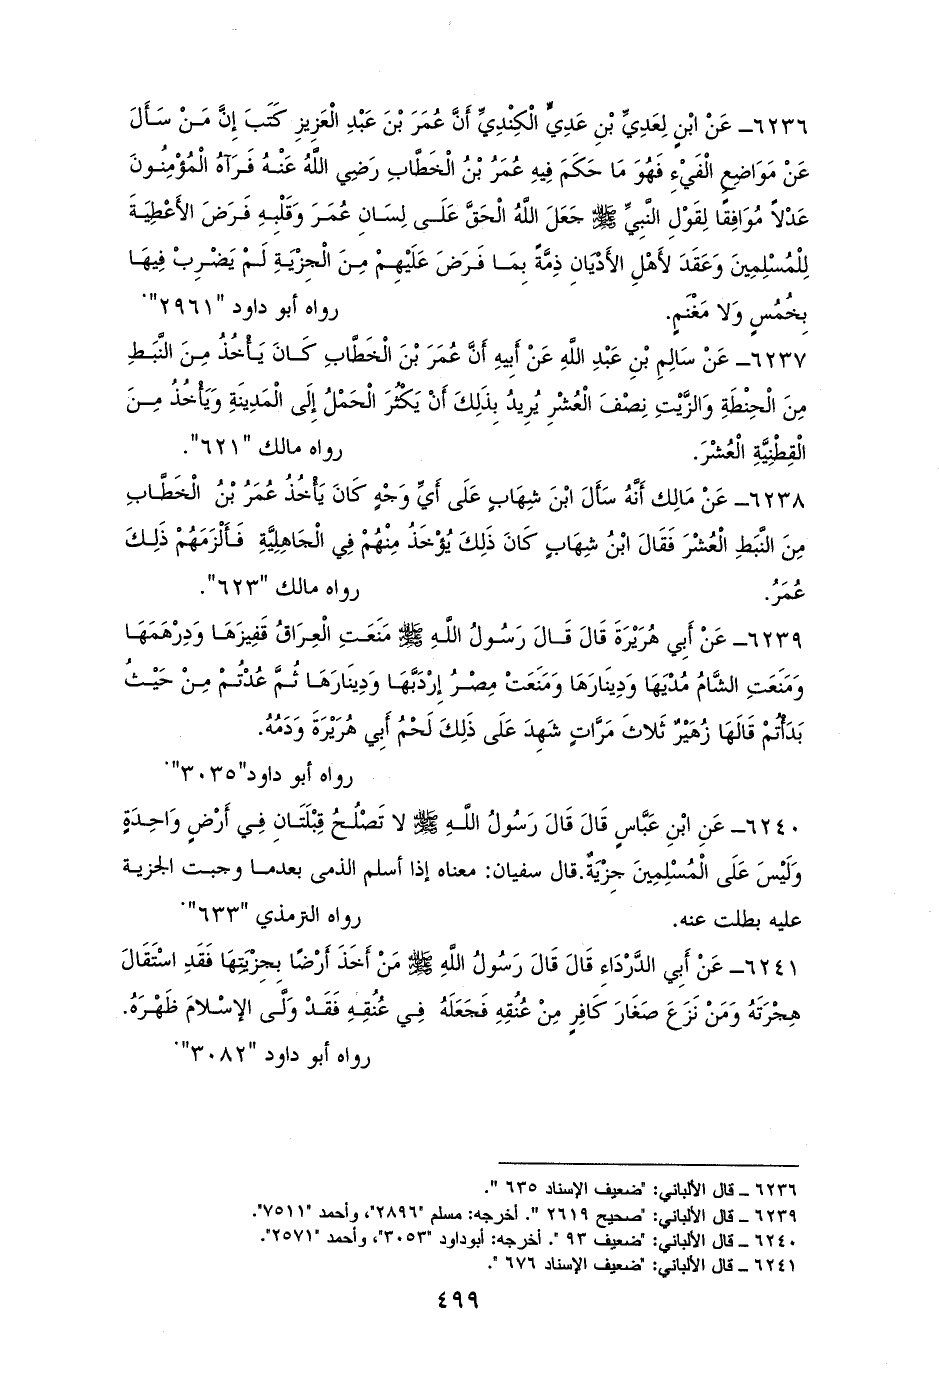 ٦٢٣٦ـ عَنْ ابْنٍ لِعَدِيِّ بْنِ عَدِيٍّ الْكِنْدِيِّ أَنَّ عُمَرَ بْنَ عَبْدِ الْعَزِيزِ كَتَبَ إِنَّ مَـنْ سَـأَلَ
عَنْ مَوَاضِعِ الْفَيْءِ فَهُوَ مَا حَكَمَ فِيهِ عُمَرُ بْنُ الْخَطَّابِ رَضِي اللَّهُ عَنْـهُ فَـرَآهُ الْمُؤْمِنُـونَ
عَدْلاً مُوَافِقًا لِقَوْلِ النَّبِيِّ ﷺ جَعَلَ اللَّهُ الْحَقَّ عَلَـى لِسَـانِ عُمَـرَ وَقَلْبِـهِ فَـرَضَ الأَعْطِيَـةَ
لِلْمُسْلِمِينَ وَعَقَدَ لأَهْلِ الأَدْيَانِ ذِمَّةً بِمَـا فَـرَضَ عَلَيْهِـمْ مِـنَ الْجِزْيَـةِ لَـمْ يَضْـرِبْ فِيهَـا
بِخُمُسٍ وَلا مَغْنَمٍ. رواه أبو داود "٢٩٦١".
٦٢٣٧ـ عَنْ سَالِمِ بْنِ عَبْدِ اللَّهِ عَنْ أَبِيهِ أَنَّ عُمَرَ بْنَ الْخَطَّابِ كَـانَ يَـأْخُذُ مِـنَ النَّبَـطِ
مِنَ الْحِنْطَةِ وَالزَّيْتِ نِصْفَ الْعُشْرِ يُرِيدُ بِذَلِكَ أَنْ يَكْثُرَ الْحَمْلُ إِلَى الْمَدِينَةِ وَيَأْخُذُ مِـنَ
الْقِطْنِيَّةِ الْعُشْرَ. رواه مالك "٦٢١".
٦٢٣٨ـ عَنْ مَالِك أَنَّهُ سَأَلَ ابْنَ شِهَابٍ عَلَى أَيِّ وَجْهٍ كَانَ يَأْخُذُ عُمَرُ بْنُ الْخَطَّابِ
مِنَ النَّبَطِ الْعُشْرَ فَقَالَ ابْنُ شِهَابٍ كَانَ ذَلِكَ يُؤْخَذُ مِنْهُمْ فِي الْجَاهِلِيَّةِ فَـأَلْزَمَهُمْ ذَلِـكَ
عُمَرُ. رواه مالك "٦٢٣".
٦٢٣٩ـ عَنْ أَبِي هُرَيْرَةَ قَالَ قَـالَ رَسُـولُ اللَّـهِ ﷺ مَنَعَتِ الْعِرَاقُ قَفِيزَهَـا وَدِرْهَمَهَـا
وَمَنَعَتِ الشَّامُ مُدْيَهَا وَدِينَارَهَا وَمَنَعَتْ مِصْـرُ إِرْدَبَّهَـا وَدِينَارَهَـا ثُـمَّ عُدْتُـمْ مِـنْ حَيْـثُ
بَدَأْتُمْ قَالَهَا زُهَيْرٌ ثَلاثَ مَرَّاتٍ شَهِدَ عَلَى ذَلِكَ لَحْمُ أَبِي هُرَيْرَةَ وَدَمُهُ.
رواه أبو داود"٣٠٣٥".
٦٢٤٠ـ عَنِ ابْنِ عَبَّاسٍ قَالَ قَالَ رَسُولُ اللَّـهِ ﷺ لا تَصْلُـحُ قِبْلَتَـانِ فِـي أَرْضٍ وَاحِـدَةٍ
وَلَيْسَ عَلَى الْمُسْلِمِينَ جِزْيَةٌ.قال سفيان: معناه إذا أسلم الذمى بعدمـا وجبـت الجزيـة
عليه بطلت عنه. رواه الترمذي "٦٣٣".
٦٢٤١ـ عَنْ أَبِي الدَّرْدَاءِ قَالَ قَالَ رَسُولُ اللَّهِ ﷺ مَنْ أَخَذَ أَرْضًا بِجِزْيَتِهَا فَقَدِ اسْتَقَالَ
هِجْرَتَهُ وَمَنْ نَزَعَ صَغَارَ كَافِرٍ مِنْ عُنُقِهِ فَجَعَلَهُ فِـي عُنُقِـهِ فَقَـدْ وَلَّـى الإِسْلامَ ظَهْـرَهُ.
رواه أبو داود "٣٠٨٢".
٦٢٣٦ ـ قال الألباني: "ضعيف الإسناد ٦٣٥ ".
٦٢٣٩ ـ قال الألباني: "صحيح ٢٦١٩ ". أخرجه: مسلم "٢٨٩٦"، وأحمد "٧٥١١".
٦٢٤٠ ـ قال الألباني: "ضعيف ٩٣ ". أخرجه: أبوداود "٣٠٥٣"، وأحمد "٢٥٧١".
٦٢٤١ ـ قال الألباني: "ضعيف الإسناد ٦٧٦ ".
٤٩٩